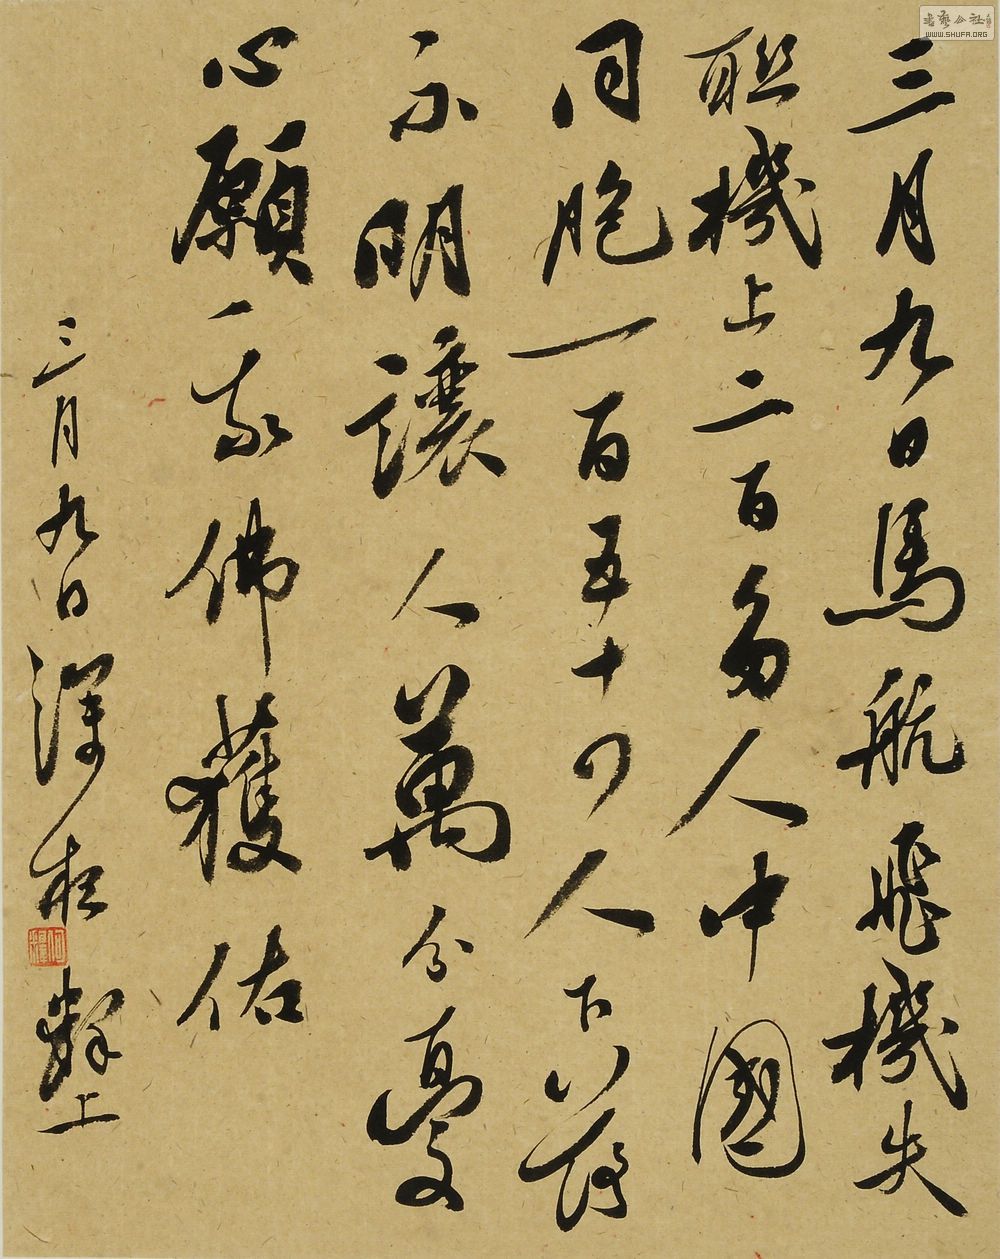 書藝公社
WWW.SHUFA.ORG
三月九日馬航飛機失
聯機上二百多人中國
同胞一百五十四人下落
不明讓人萬分憂
心願我佛獲佑
三月九日深 上